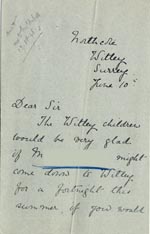 Northcote
Witley
Surrey
June 10th
Dear Sir
The Witley children
would be very glad
if M might
come down to Witley
for a fortnight this
summer, if you would